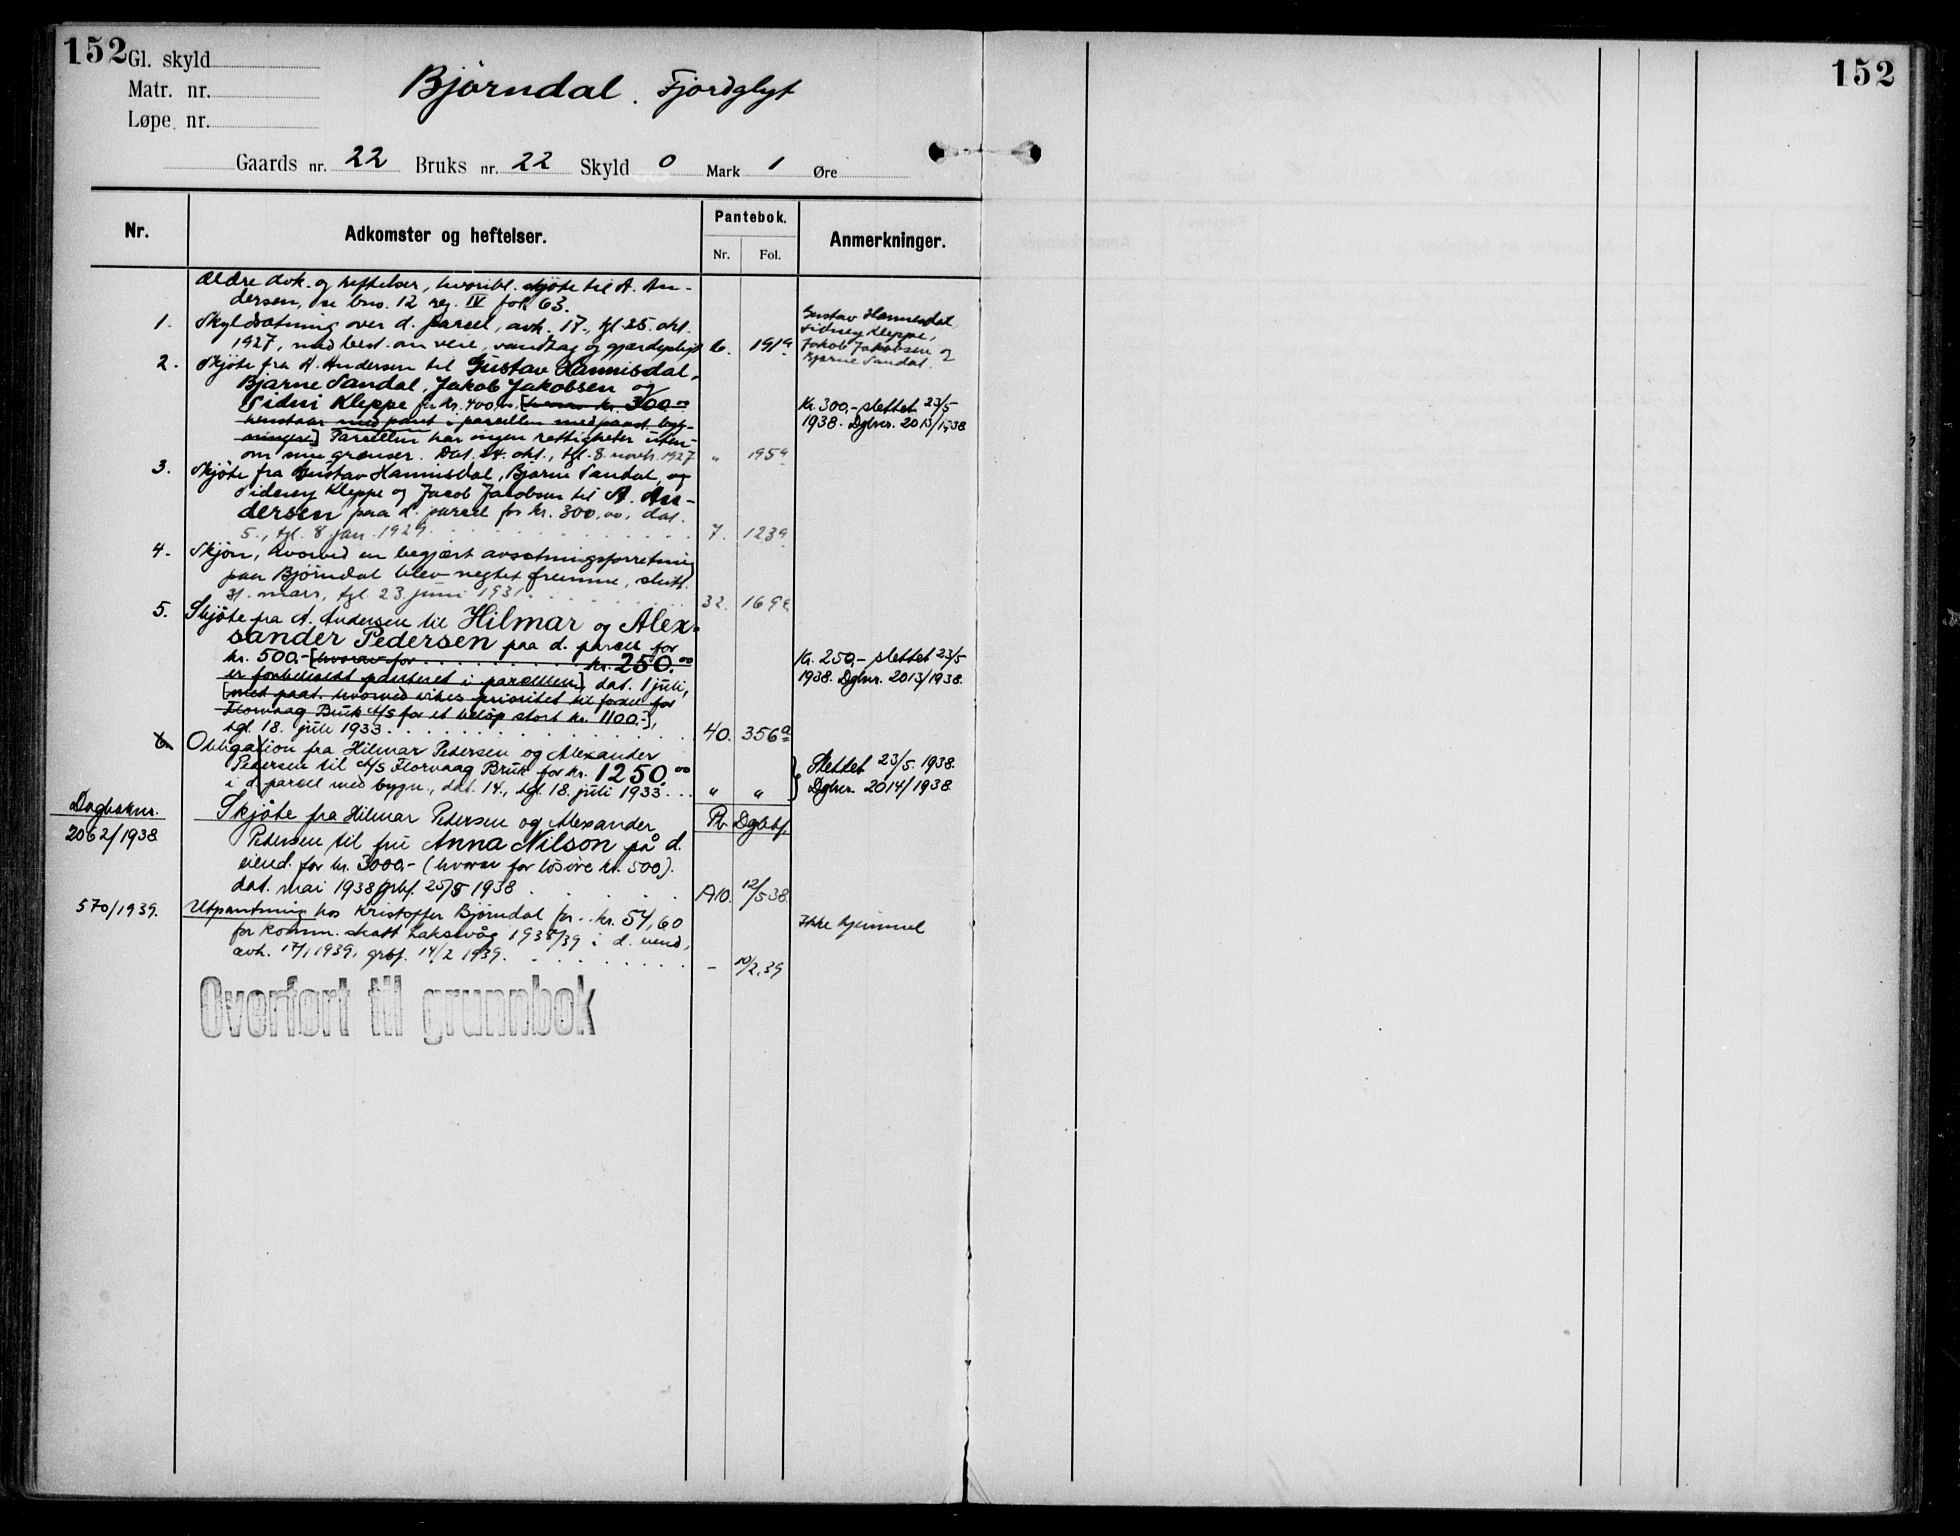 152
152
Gl. skyld
Matr. nr.
Løpe nr.
Bjørndal. Fjordglyt
Gaards nr. 22 Bruks nr. 22 Skyld 0 Mark 1 Øre
Nr.
Adkomster og heftelser.
Pantebok.
Nr. Fol.
Anmerkninger.
Ældre adk. og heftelser, hvoribl. skjøte til A. An-
dersen, se bnr. 12 reg. IV fol. 63.
1. Skyldsætning over d. parcel, avh. 17., tgl. 25. okt.
1927, med best. om veie, vandtag og gjærdeplikt 6. 191a
Gustav Hannisdal,
Sidney Kleppe,
Jakob Jakobsen og
Bjarne Sandal.
2. Skjøte fra A. Andersen til Gustav Hannisdal,
Bjarne Sandal, Jakob Jakobsen og
Sidni Kleppe for kr. 400,00 [hvorav kr. 300.00
henstaar med pant i parcellen med paast. byg-
ninger] Parcellen har ingen rettigheter uten-
om sine grænser. Dat. 24. okt., tgl. 8. novbr. 1927 " 195a
Kr. 300,- slettet 23/5
1938. Dgbnr. 2013/1938
3. Skjøte fra Gustav Hannisdal, Bjarne Sandal, og
Sidney Kleppe og Jacob Jacobsen til A. An-
dersen paa d. parcel for kr. 300,00, dat.
5., tgl. 8 jan. 1929. 7. 123a
4. Skjøn, hvorved en begjært avsetningsforretning
paa Bjørndal blev negtet fremme, slutt.
31. mars, tgl. 23. juni 1931. 32. 169a
5. Skjøte fra A. Andersen til Hilmar og Alex-
sander Pedersen paa d. parcell for
kr. 500.- [hvorav for kr. 250.00
er forbeholdt panteret i parcellen] dat. 1 juli,
[med paat. hvorved vikes prioritet til fordel for
Florvaag Bruk A/S for et beløp stort kr. 1100.-],
tgl. 18. juli 1933. 40. 356a
Kr. 250,- slettet 23/5
1938. Dgbnr. 2013/1938.
6. Obligation fra Hilmar Pedersen og Alexander
Pedersen til A/S Florvaag Bruk for kr. 1250.00
i d. parcell med bygn., dat. 14., tgl. 18. juli 1933. " "
Slettet 23/5. 1938.
Dgbnr. 2014/1938
Dagboknr.
2062/1938
Skjøte fra Hilmar Pedersen og Alexander Pb. Dgbbf.
Pedersen til fru Anna Nilson på d.
eiend. for kr. 3000,- (hvorav for løsøre kr. 500).
dat. mai 1938, grbf. 25/5 1938 A10. 12/5 38.
570/1939. Utpantning hos Kristoffer Bjørndal for kr. 54,60
for komm. skatt Laksevåg 1938/39 i d. eiend,
avh. 17/1 1939, grbf. 14/2 1939. - 10/2.39
Ikke hjemmel
Overført til grunnbok